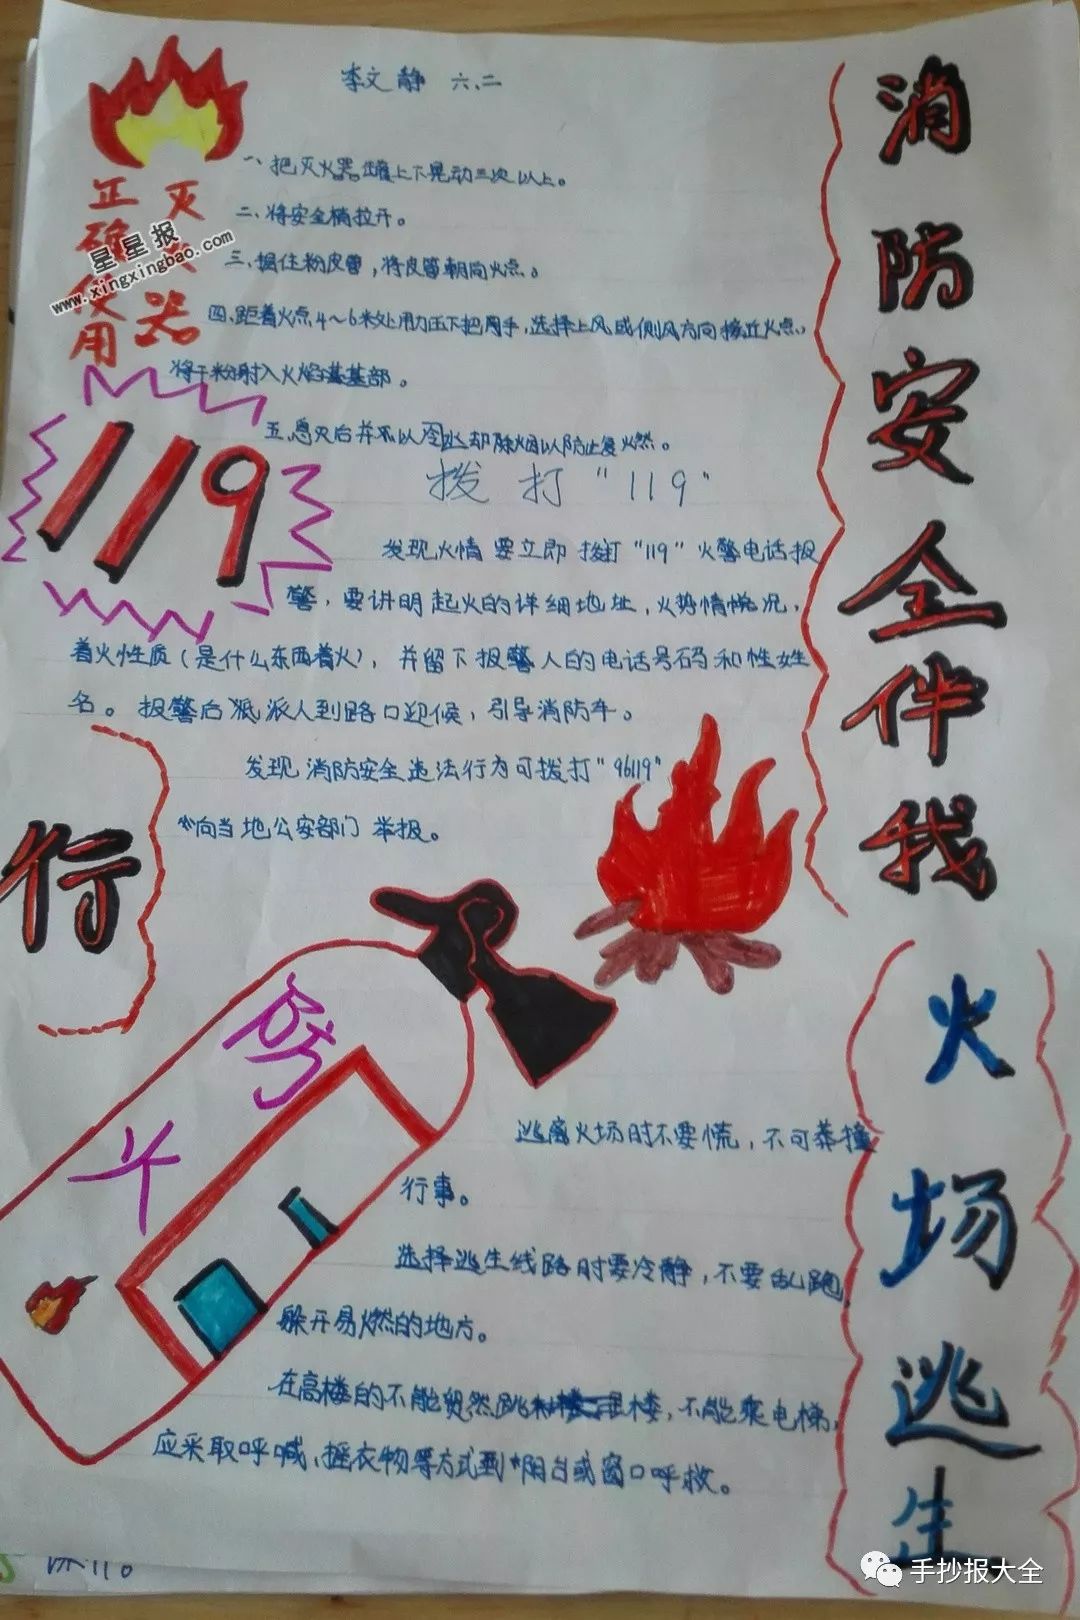 李文静 六.二
消防安全伴我
行
正确使用
灭火器
星星报
www.xingxingbao.com
一、把灭火器罐上下晃动三次以上。
二、将安全梢拉开。
三、握住粉皮管,将皮管朝向火点。
四、距着火点4~6米处用力压下把用手,选择上风或侧风方向接近火点,
将干粉射入火焰基基部。
119
拨打"119"
发现火情要立即拨打"119"火警电话报
警,要讲明起火的详细地址,火势情况,
着火性质(是什么东西着火),并留下报警人的电话号码和性姓
名。报警后派派人到路口迎候,引导消防车。
发现消防安全违法行为可拨打"96119"
向当地公安部门举报。
防
火场逃生
逃离火场时不要慌,不可莽撞
行事。
选择逃生线路时要冷静,不要乱跑,
躲开易燃的地方。
在高楼的不能贸然跳楼,不能乘电梯,
应采取呼喊,摇衣物等方式到阳台或窗口呼救。
手抄报大全